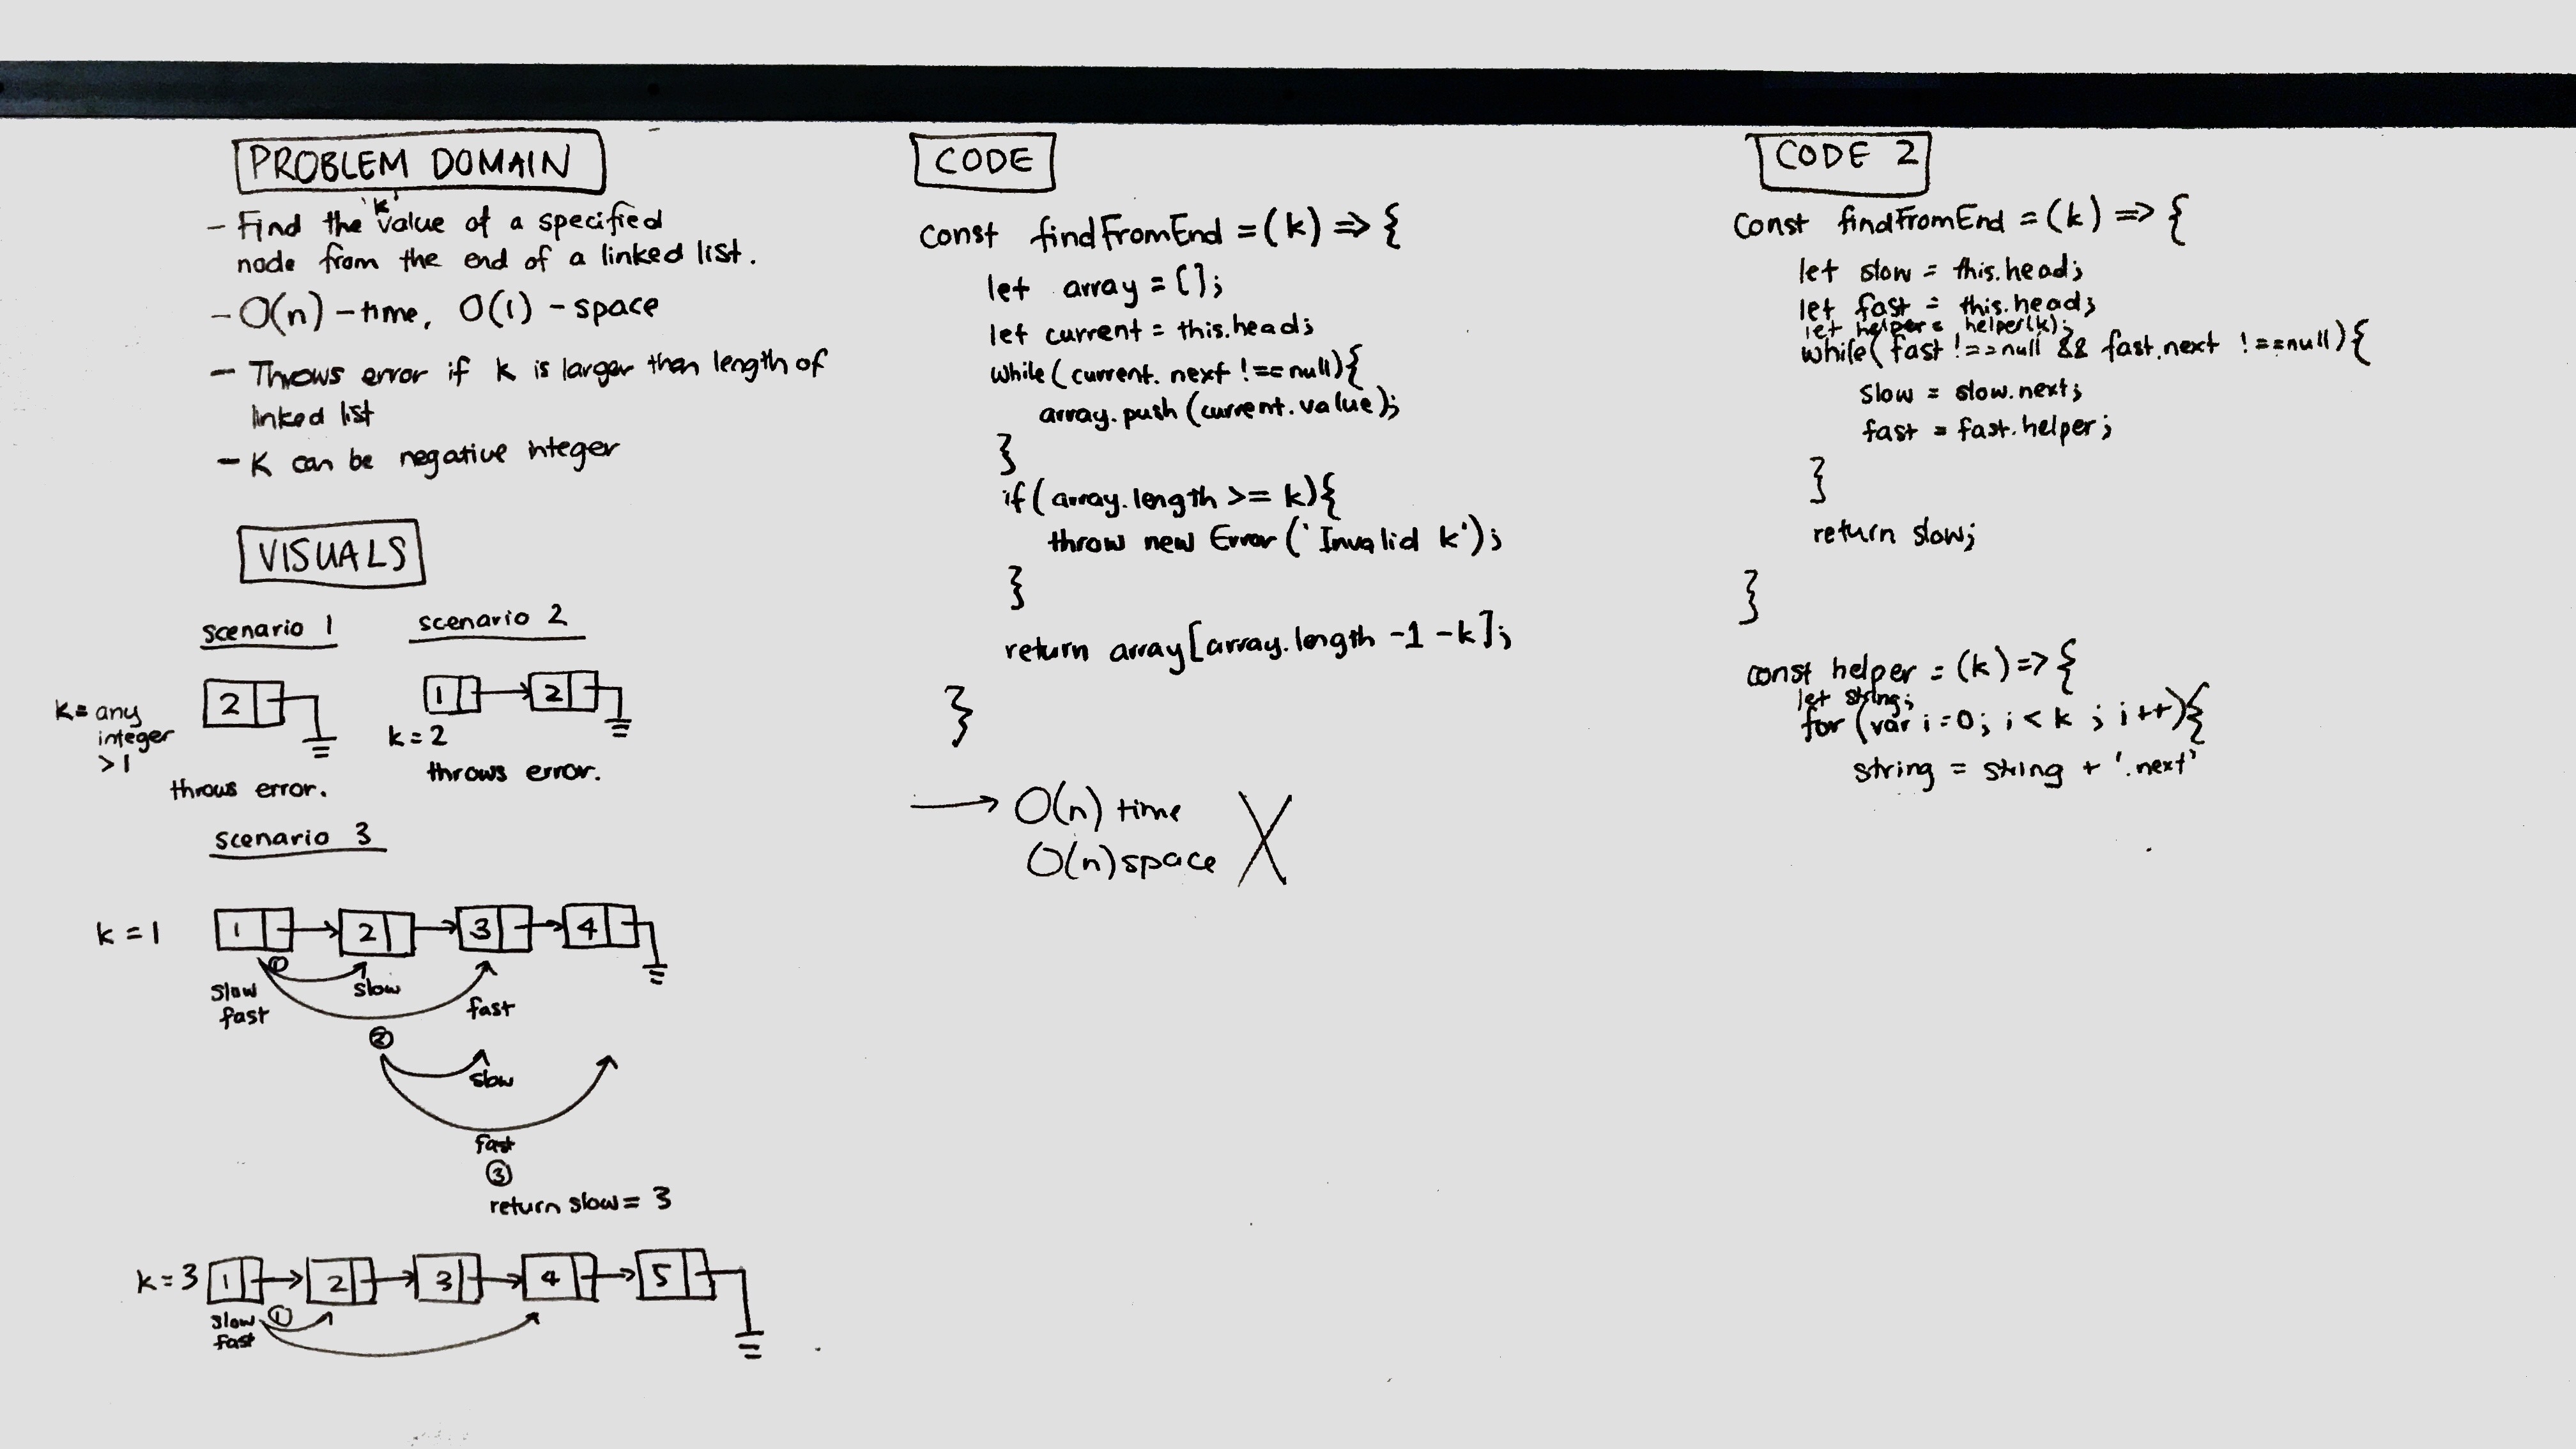 PROBLEM DOMAIN
'k'
- Find the value of a specified
node from the end of a linked list.
- O(n) - time, O(1) - space
- Throws error if k is larger then length of
linked list
- K can be negative integer
VISUALS
scenario 1
2
k = any
integer
>1
throws error.
scenario 2
1 2
k = 2
throws error.
scenario 3
k = 1 1 2 3 4
①
slow
fast
slow
fast
②
slow
fast
③
return slow = 3
k = 3 1 2 3 4 5
①
slow
fast
CODE
const findFromEnd = (k) => {
let array = [];
let current = this.head;
while (current.next !== null){
array.push (current.value);
}
if (array.length >= k){
throw new Error ('Invalid k');
}
return array[array.length -1 -k];
}
→ O(n) time
O(n) space X
CODE 2
const findFromEnd = (k) => {
let slow = this.head;
let fast = this.head;
let helper = helper(k);
while( fast !== null && fast.next !== null){
slow = slow.next;
fast = fast.helper;
}
return slow;
}
const helper = (k) => {
let string;
for (var i = 0; i < k ; i ++){
string = string + '.next'